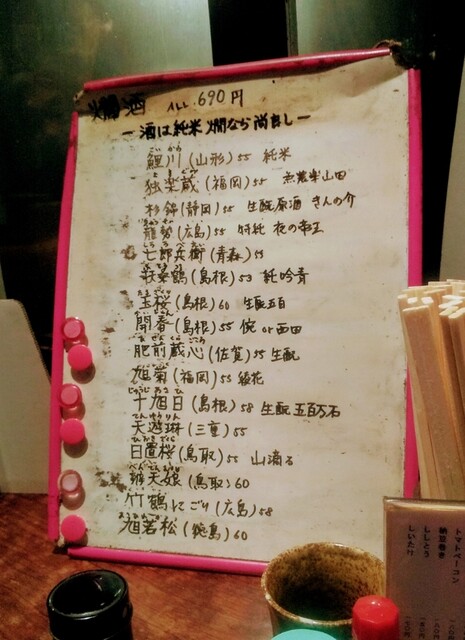 燗酒 ALL 690円
ー酒は純米 燗なら尚良しー
鯉川(山形)55 純米
独楽蔵(福岡)55 無農薬山田
杉錦(静岡)55 生酛原酒 きんの介
龍勢(広島)55 特純 夜の帝王
七郎兵衛(青森)55
萩乃鶴(島根)53 純吟青
玉桜(島根)60 生酛五百
開春(島根)55 俺 or 西田
肥前蔵心(佐賀)55 生酛
旭菊(福岡)55 綾花
十旭日(島根)58 生酛 五百万石
天遊琳(三重)55
日置桜(鳥取)55 山滴る
辨天娘(鳥取)60
竹鶴にごり(広島)58
旭若松(徳島)60
トマトベーコン
納豆巻き
ししとう
しいたけ